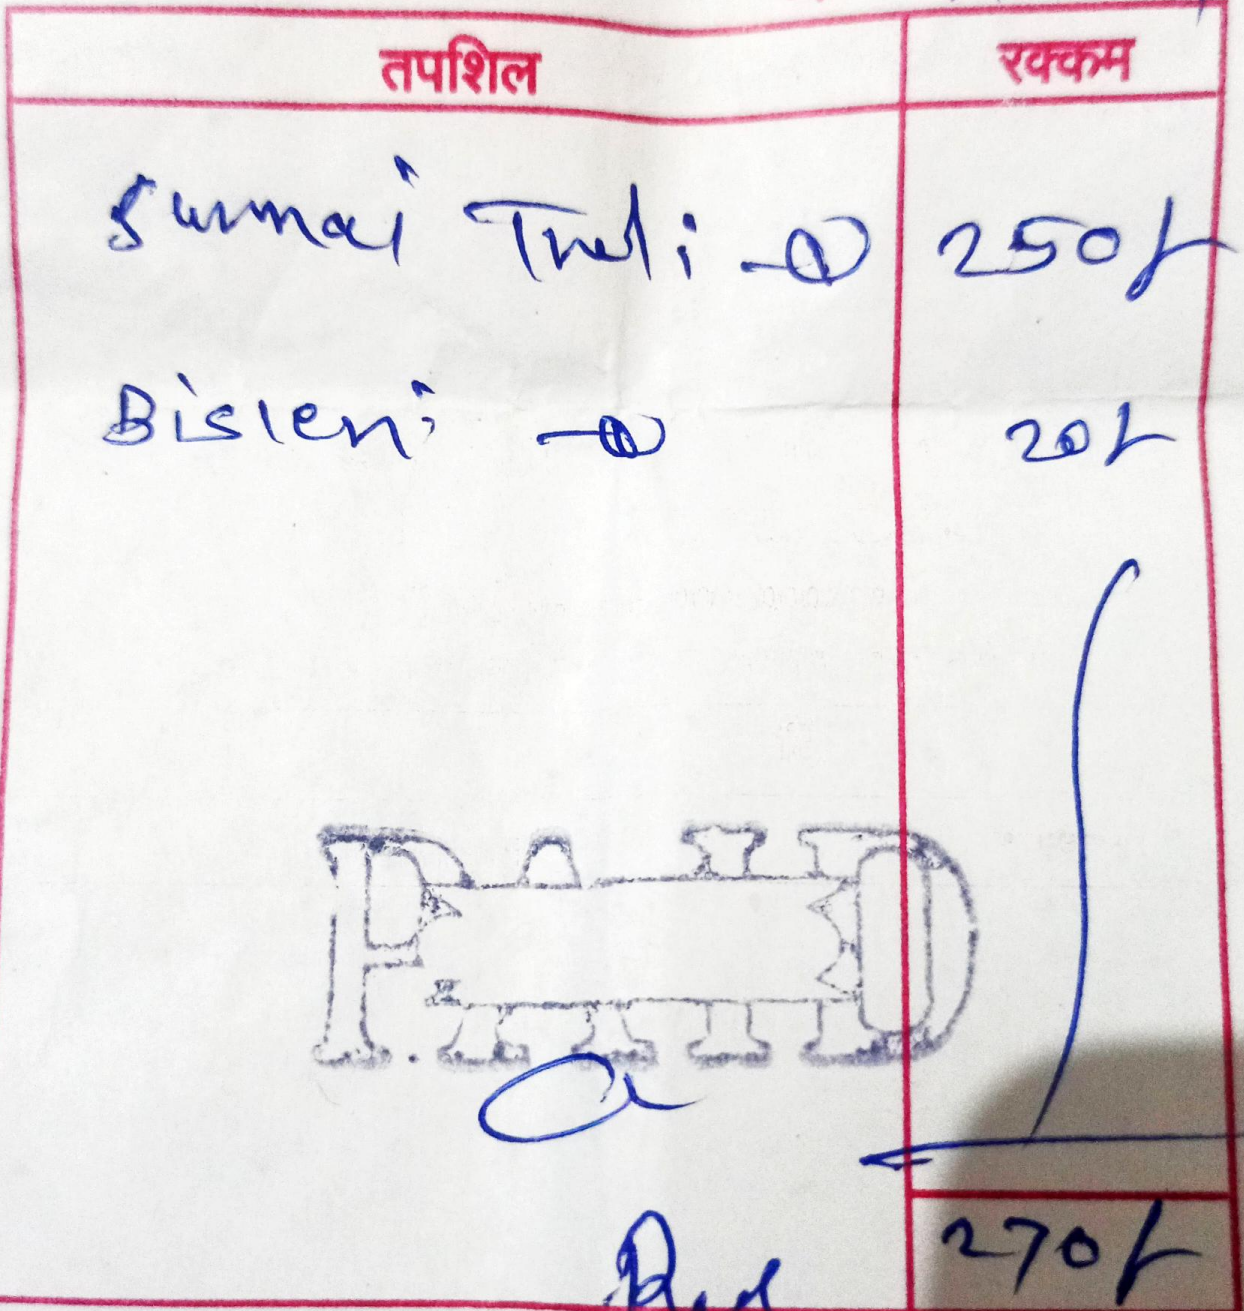 तपशिल रक्कम
Surmai Thali -① 250/-
Bisleri -① 20/-
PAID
270/-